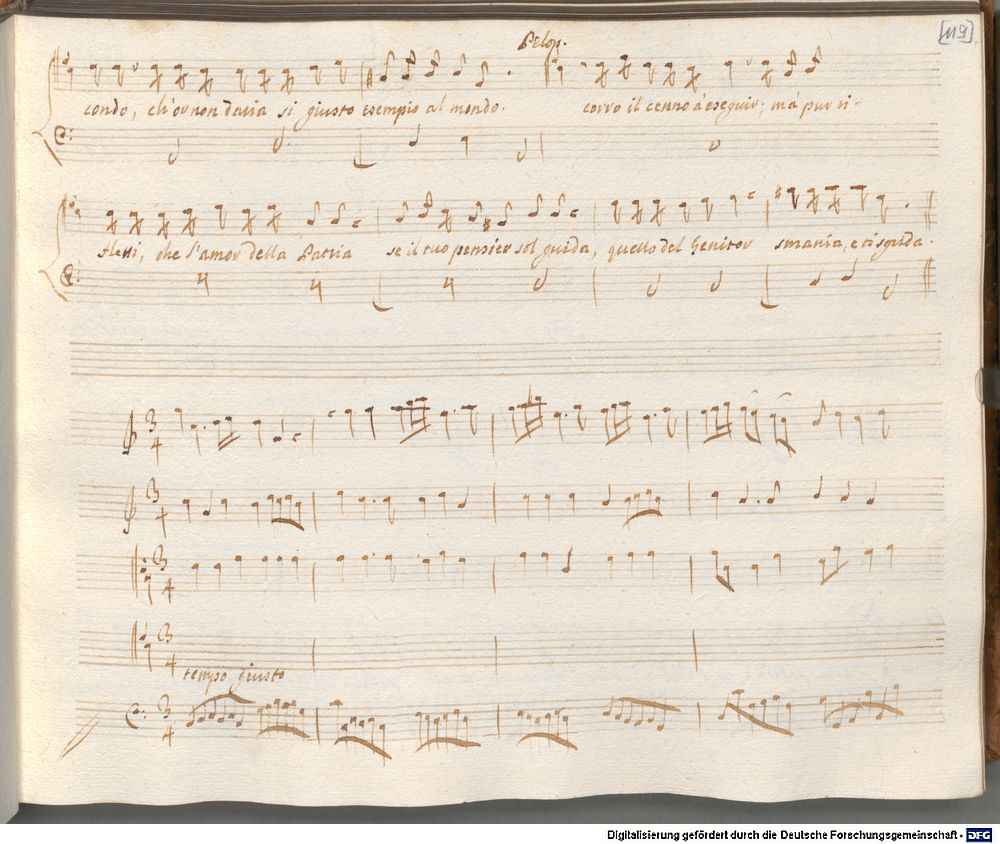 [119]
Pelop.
condo, ch'or non daria si giusto esempio al mondo. corro il cenno à eseguir; mà pur ri-
fletti, che l'amor della Patria se il tuo pensier sol guida, quello del Genitor smania, e ti sgrida.
tempo giusto
Digitalisierung gefördert durch die Deutsche Forschungsgemeinschaft - DFG